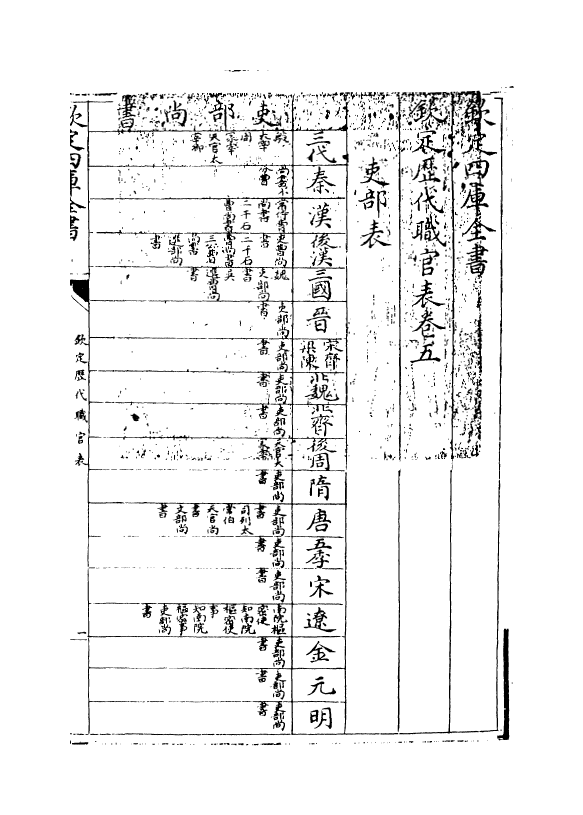 欽定四庫全書
欽定歷代職官表卷五
吏部表
三代
秦
漢
後漢
三國
晉
宋齊
梁陳
北魏
北齊
後周
隋
唐
五季
宋
遼
金
元
明
吏部尚書
殷
太宰
周
冢宰
天官太
宰卿
常侍曹
尚書
二千石
曹尚書
吏曹尚
書
二千石
曹尚書
魏
吏部尚
書
吳
選曹尚
書
吏部尚
書
吏部尚
書
吏部尚
書
吏部尚
書
天官大
冢宰
吏部尚
書
吏部尚
書
司列太
常伯
天官尚
書
文部尚
書
吏部尚
書
吏部尚
書
南院樞
密使
知南院
樞密使
事
知南院
樞密事
吏部尚
書
吏部尚
書
吏部尚
書
吏部尚
書
欽定四庫全書
欽定歷代職官表
一